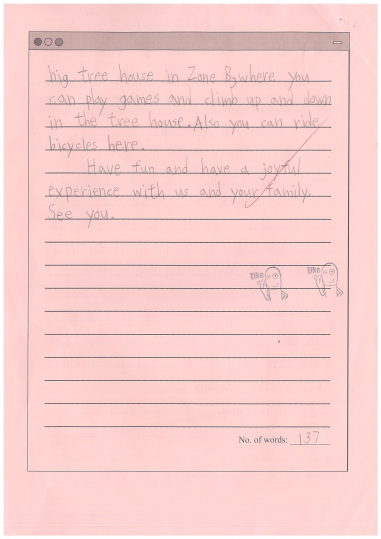 big tree house in Zone B, where you
can play games and climb up and down
in the tree house. Also you can ride
bicycles here.
Have fun and have a joyful
experience with us and your family.
See you.
like
like
No. of words: 137